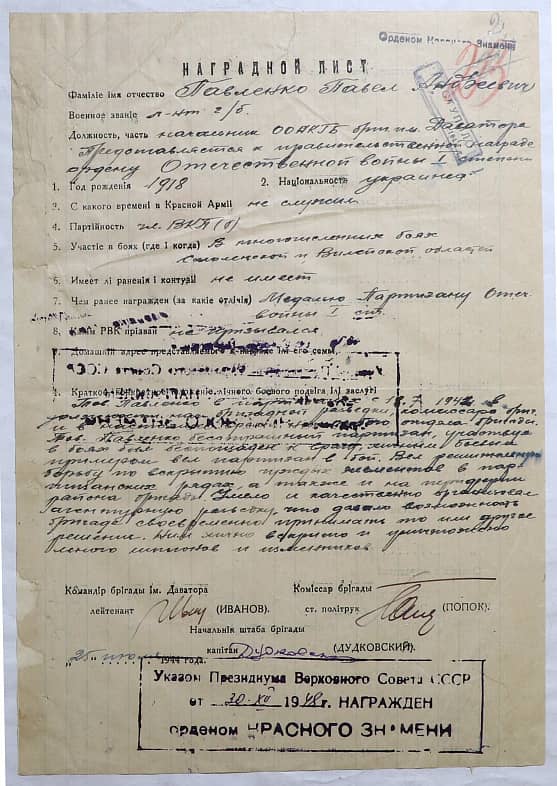 2.
Орденом Красного Знамени
НАГРАДНОЙ ЛИСТ
Фаміліе імя отчество Павленко Павел Андреевич
Военное званіе л-нт г/б.
Должность, часть начальник ООНКГБ бриг. им. Даватора
Представляется к правительственной награде
ордену Отечественной войны I степени
1. Год рожденія 1918 2. Національность украинец
3. С какого времені в Красной Арміі не служил
4. Партійность чл. ВКП(б)
5. Участіе в боях (где і когда) В многочисленных боях
Смоленской и Вилейской областей
6. Имеет лі раненія і контузіі не имеет
7. Чем ранее награжден (за какіе отлічія) Медалью Партизану Отеч.
войны I ст.
8. Каким РВК прізван не призывался
9. Домашній адрес представляемого к награде ім его семьі
Тов. Павленко 1942 в
комиссара бриг.
отдела бригады.
Тов. Павленко бесстрашный партизан, участвуя
в боях был беспощаден к врагу, личным боевым
примером вел партизан в бой. Вел решительную
борьбу по вскрытию чуждых элементов в пар-
тизанских рядах, а также и на территории
района бригады. Умело и качественно организовал
агентурную разведку, что давало возможность
бригаде своевременно принимать то или другое
решение. Им лично вскрыто и уничтожено
шпионов и изменников
Командір брігады ім. Даватора Коміссар брігады
лейтенант (ИВАНОВ). ст. політрук (ПОПОК).
Начальнік штаба брігады
капітан Дудковский (ДУДКОВСКИЙ).
"25" 1944 года.
Указом Президиума Верховного Совета СССР
от 30-XII 1948 г. НАГРАЖДЕН
орденом КРАСНОГО ЗНАМЕНИ